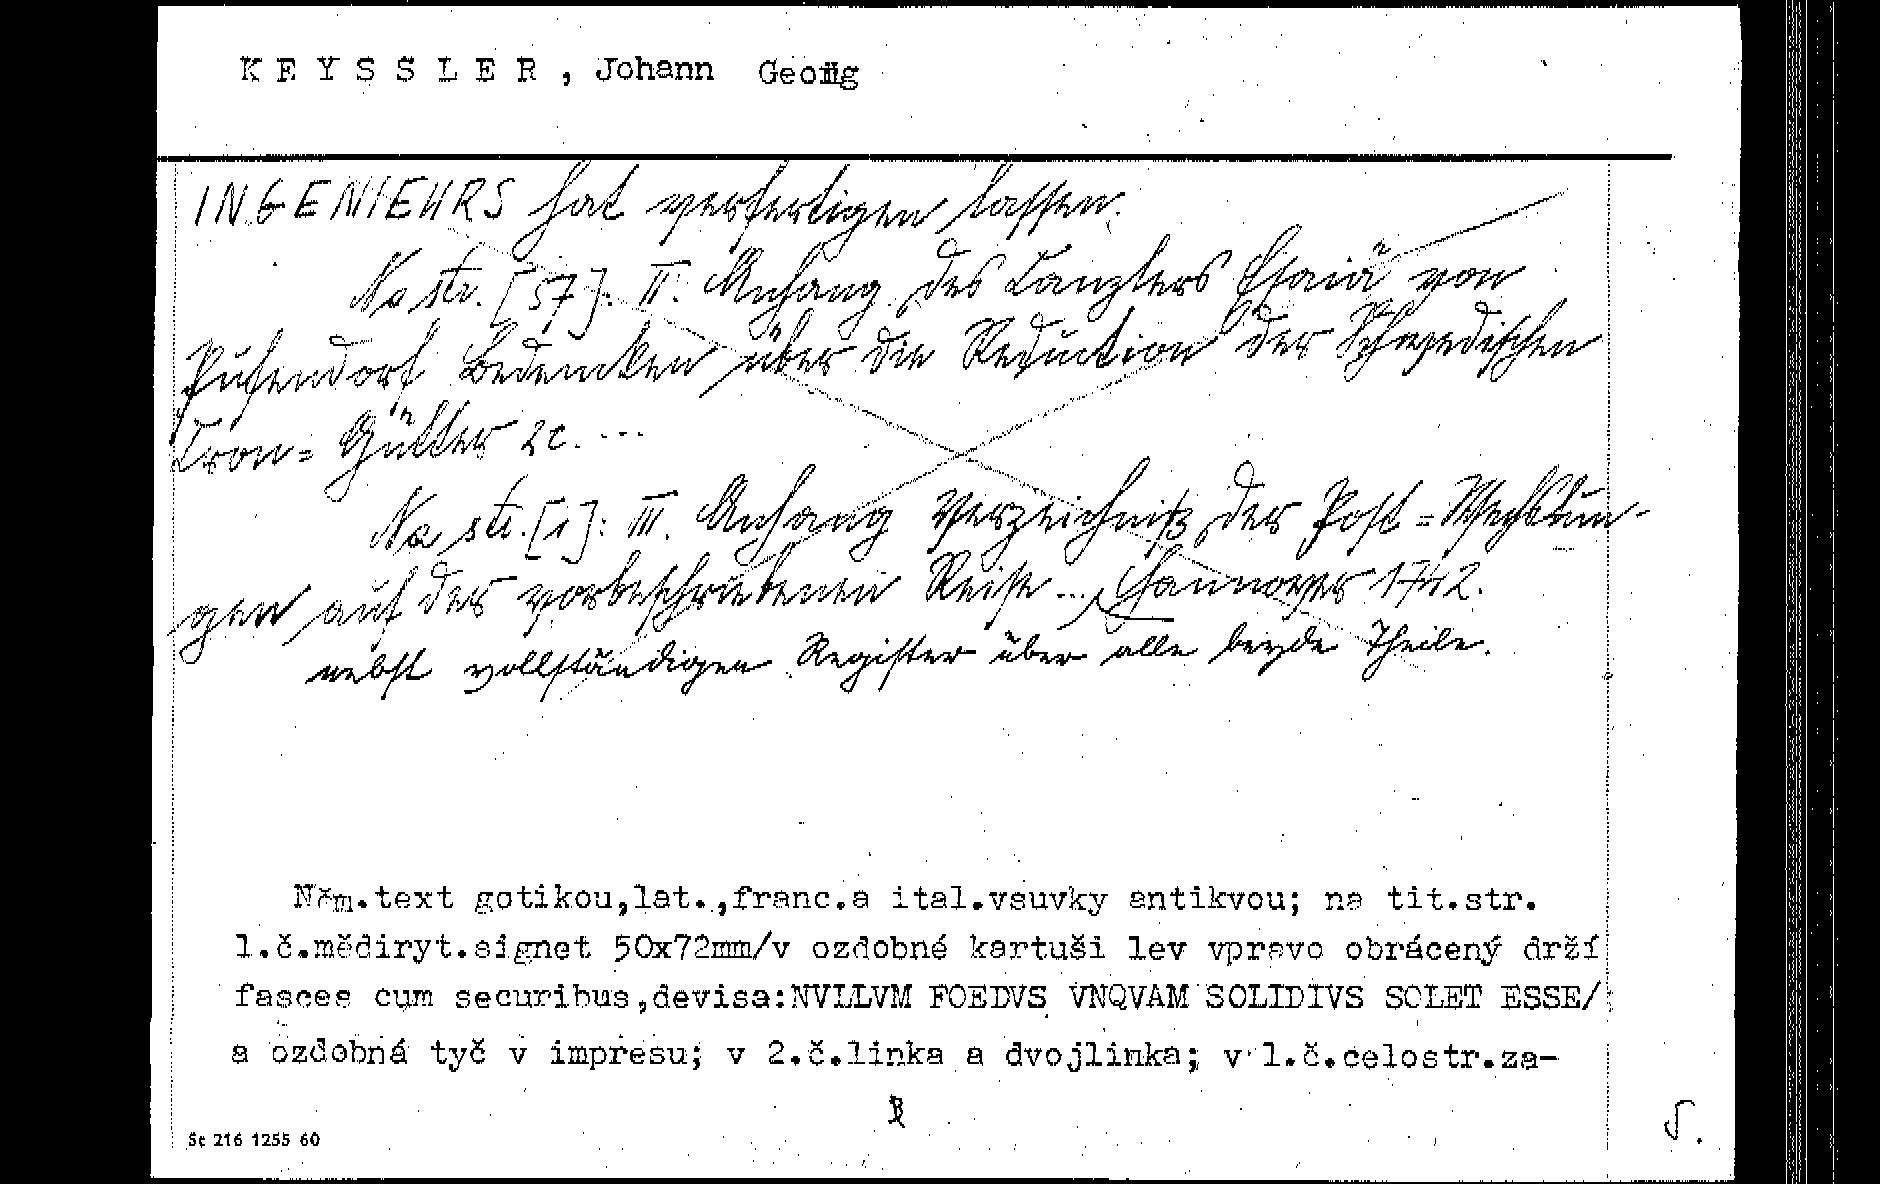 K E Y S S L E R , Johann Georg
INGENIEURS hat verfertigen lassen.
Na str. [57]: II. Anhang des Canzlers Esaiä von
Pufendorf Bedencken über die Reduction der Schwedischen
Cron= Gütter 2c. ...
Na str. [1]: III. Anhang Verzeichniß der Post=Wechslun-
gen auf der vorbeschriebenen Reise... Hannover 1742.
nebst vollständigen Register über alle beyde Theile.
Něm.text gotikou,lat.,franc.a ital.vsuvky antikvou; na tit.str.
1.č.mědiryt.signet 50x72mm/v ozdobné kartuši lev vpravo obrácený drží
fasces cum securibus,devisa:NVLLVM FOEDVS VNQVAM SOLIDIVS SOLET ESSE/
a ozdobná tyč v impresu; v 2.č.linka a dvojlinka; v 1.č.celostr.za-
Sč 216 1255 60
5.